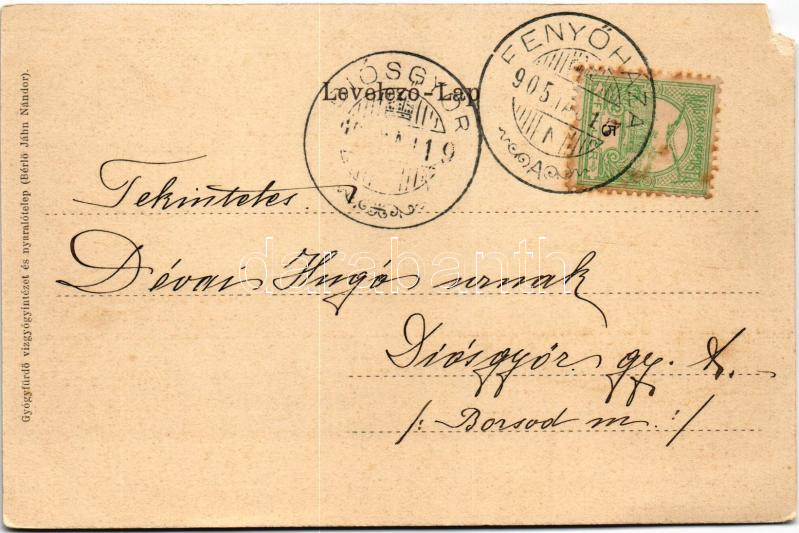 FENYŐHÁZA
905
DIÓSGYŐR
19
Levelező-Lap
5
Tekintetes
Dévai Hugó urnak
Diósgyőr gy. t.
/: Borsod m. :/
Gyógyfürdő vizgyógyintézet és nyaralótelep (Bérlő Jáhn Nándor).
darabanth